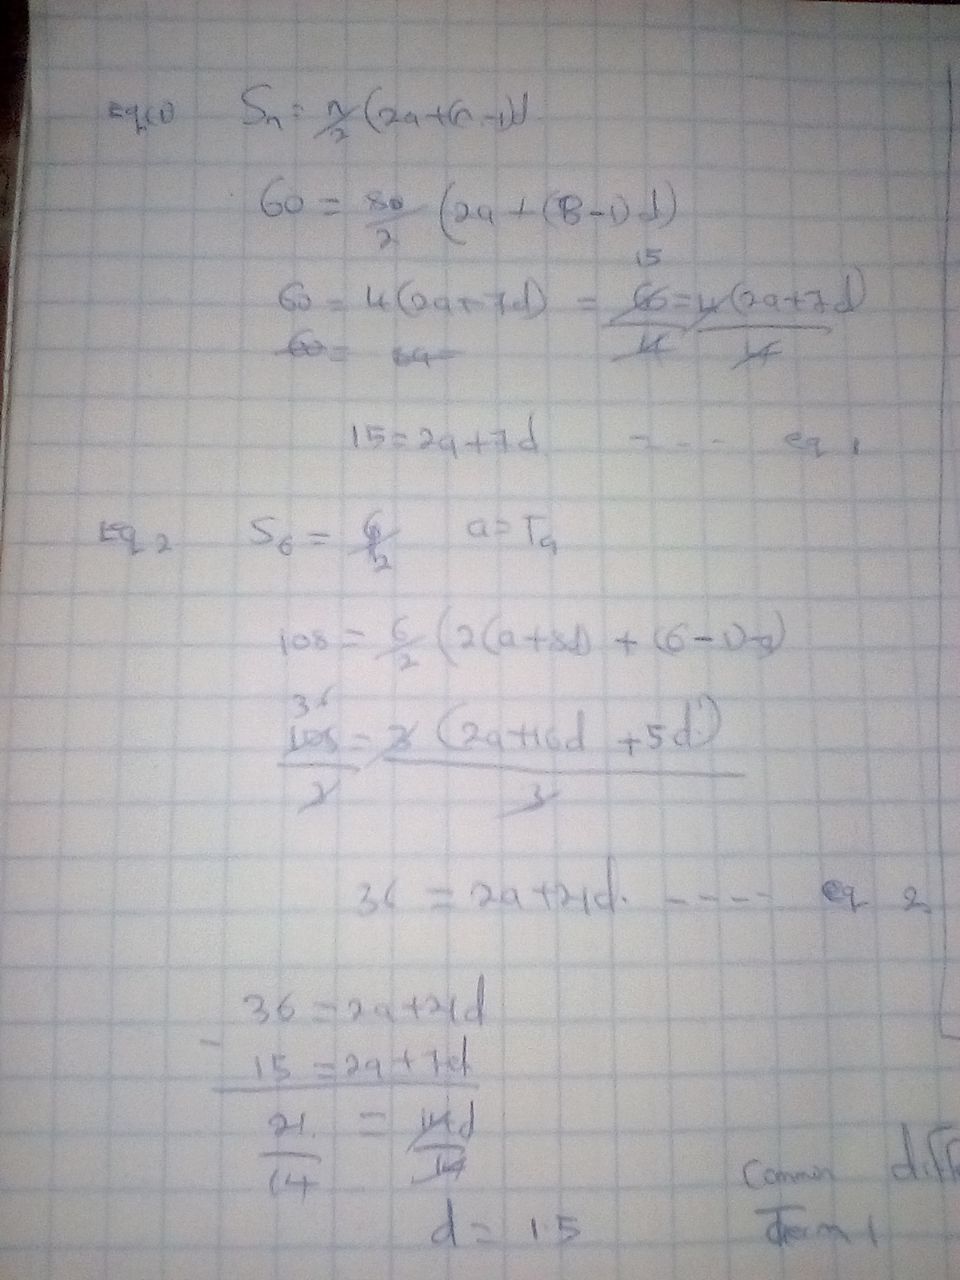 Eq(1) Sn = n/2 (2a+(n-1)d
60 = 80/2 (2a + (8-1)d)
15
60 = 4(2a+7d) = 60/4 = 4(2a+7d)/4
60 =
15 = 2a+7d ---- eq 1
Eq 2 S6 = 6/2 a = T9
108 = 6/2 (2(a+8d) + (6-1)d)
36
108/3 = 3 (2a+16d +5d)/3
36 = 2a+21d. ---- eq 2
36 = 2a+21d
- 15 = 2a+7d
21/14 = 14d/14
Common diff
d = 1.5 Term 1